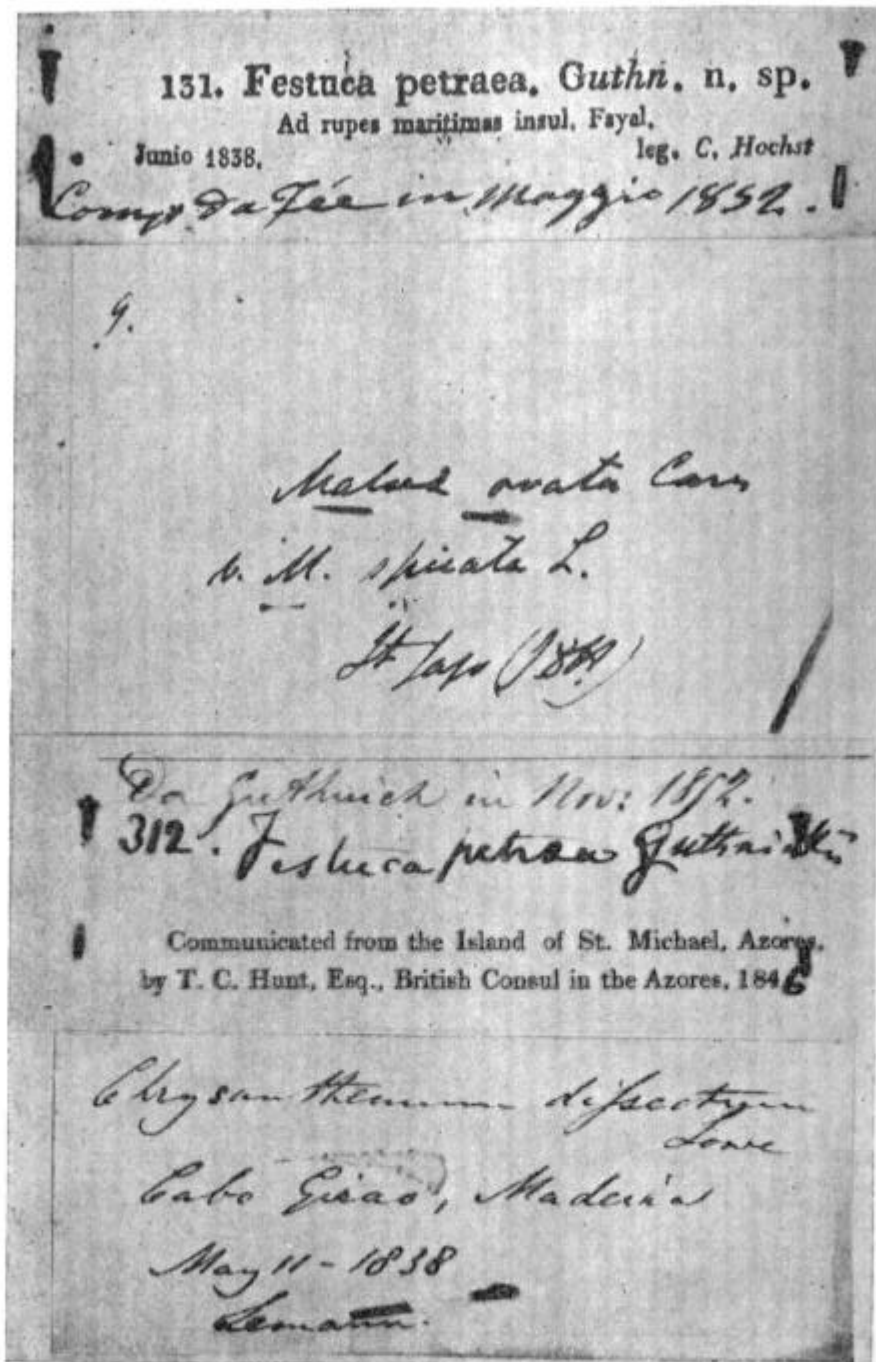 131. Festuca petraea. Guthn. n. sp.
Ad rupes maritimas insul. Fayal.
Junio 1838. leg. C. Hochst
Comp. Da Fée in Maggio 1852.
9.
Malva ovata Cav
v. M. spicata L.
St Jago
Da Guthnich in Nov: 1852.
312. Festuca petraea
Communicated from the Island of St. Michael, Azores,
by T. C. Hunt, Esq., British Consul in the Azores, 1846
Chrysanthemum dissectum
Lowe
Cabo Girao, Madeira
May 11 - 1838
Lemann.